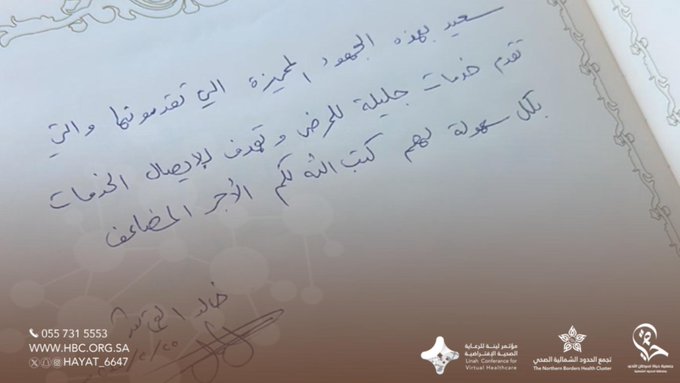 سعيد بهذه الجهود المميزة التي تقدمونها والتي
تقدم خدمات جليلة للمرضى وتهدف لإيصال الخدمات
بكل سهولة لهم كتب الله لكم الأجر المضاعف
خالد
055 731 5553
WWW.HBC.ORG.SA
@HAYAT_6647
مؤتمر لينة للرعاية
الصحية الإفتراضية
Linah Conference for
Virtual Healthcare
تجمع الحدود الشمالية الصحي
The Northern Borders Health Cluster